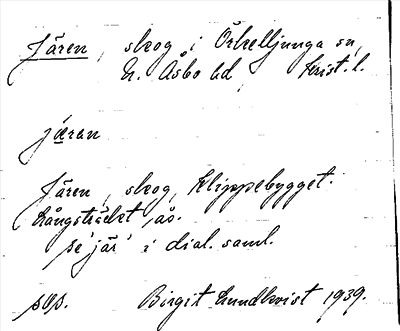 Jären, skog i Örkelljunga sn,
N. Åsbo hd Krist. l.
jæran
Jären, skog, Klippebygget.
Långsträckt ås.
se 'jär' i dial. saml.
Birgit Lundkvist 1939.